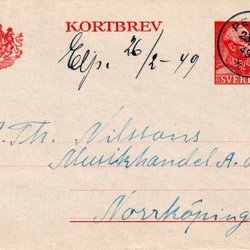 KORTBREV
Elfs. 26/2-49
SVERI
A. Th. Nilssons
Musikhandel A.
Norrköping